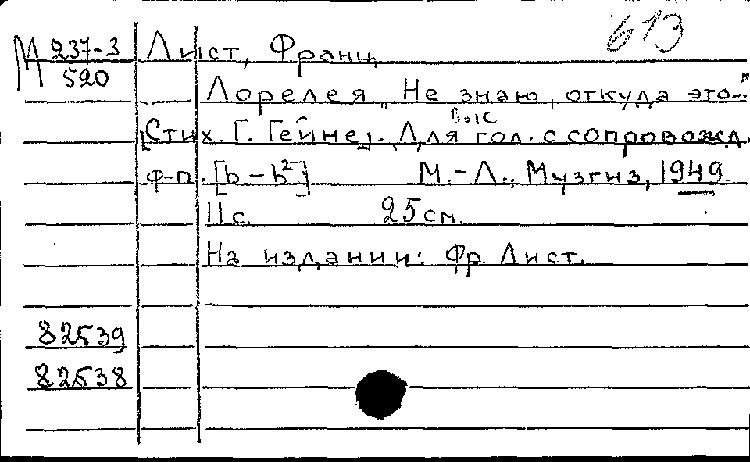 613
М 237-3 Лист, Франц
520
Лорелея „Не знаю, откуда это..."
[Стих. Г. Гейне]. Для гол. с сопровожд.
ф-п. [b – h²] М.-Л., Музгиз, 1949
11 с. 25 см.
На издании: Фр. Лист.
82539
82538